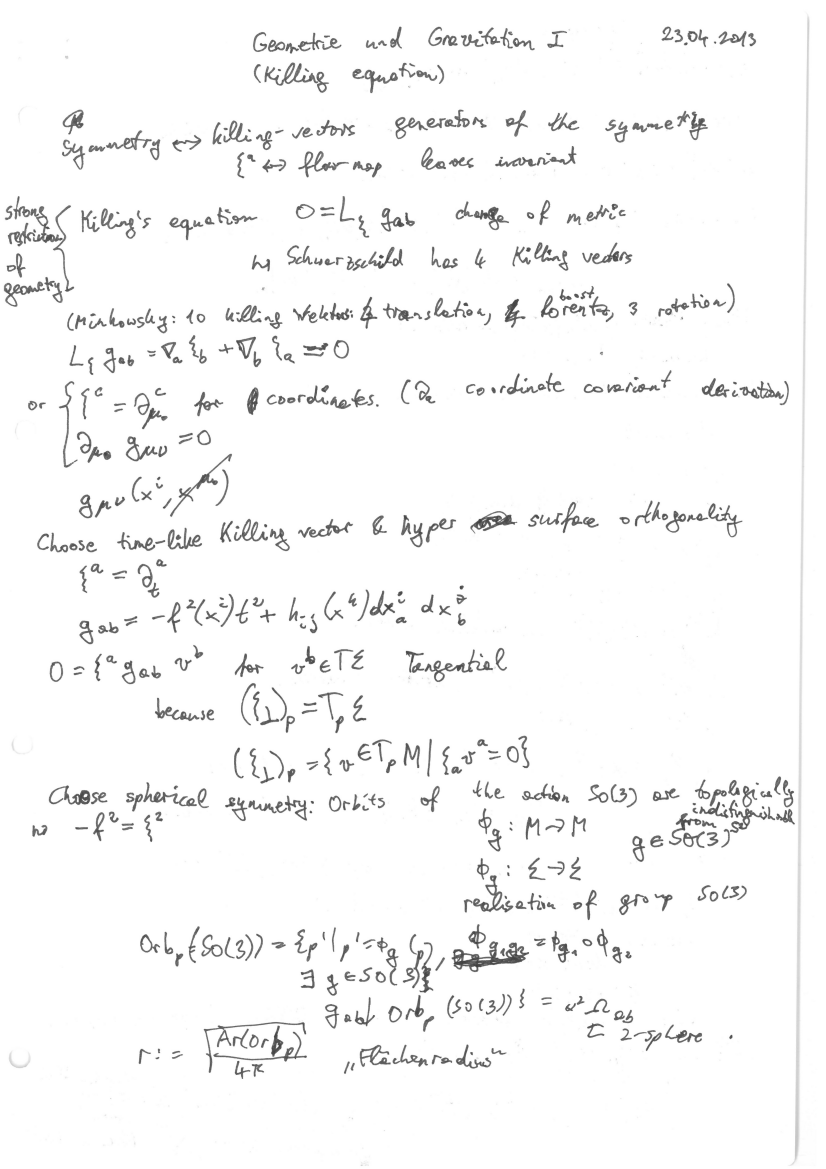 Geometrie und Gravitation I 23.04.2013
(Killing equation)
Symmetry ↔ killing-vectors generators of the symmetry
ξ^a ↔ flow map leaves invariant
strong restriction of geometry { Killing's equation 0 = L_ξ g_ab change of metric
↳ Schwarzschild has 4 Killing vectors
(Minkowsky: 10 killing Vektors: 4 translation, 3 Lorentz boost, 3 rotation)
L_ξ g_ab = ∇_a ξ_b + ∇_b ξ_a = 0
or { ξ^c = ∂^c_μ₀ for coordinates. (∂_a coordinate covariant derivation)
∂_μ₀ g_μν = 0
g_μν (x^i, x^μ₀)
Choose time-like Killing vector & hyper surface orthogonality
ξ^a = ∂_t^a
g_ab = -f²(x^i)t² + h_ij (x^k) dx^i_a dx^j_b
0 = ξ^a g_ab v^b for v^b ∈ TΣ Tangential
because (ξ⊥)_p = T_p Σ
(ξ⊥)_p = {v ∈ T_p M | ξ_a v^a = 0}
Choose spherical symmetry: Orbits of the action SO(3) are topologically indistinguishable from S²
⇝ -f² = ξ²
ϕ_g : M → M g ∈ SO(3)
ϕ_g : Σ → Σ
realisation of group SO(3)
Orb_p (SO(3)) = {p' | p' = ϕ_g (p), ϕ_g₁g₂ = ϕ_g₁ ∘ ϕ_g₂
∃ g ∈ SO(3)}
g_ab | Orb_p (SO(3))} = α² Ω_ab
2-sphere.
r := √(Ar(Orb_p)/4π) „Flächenradius"